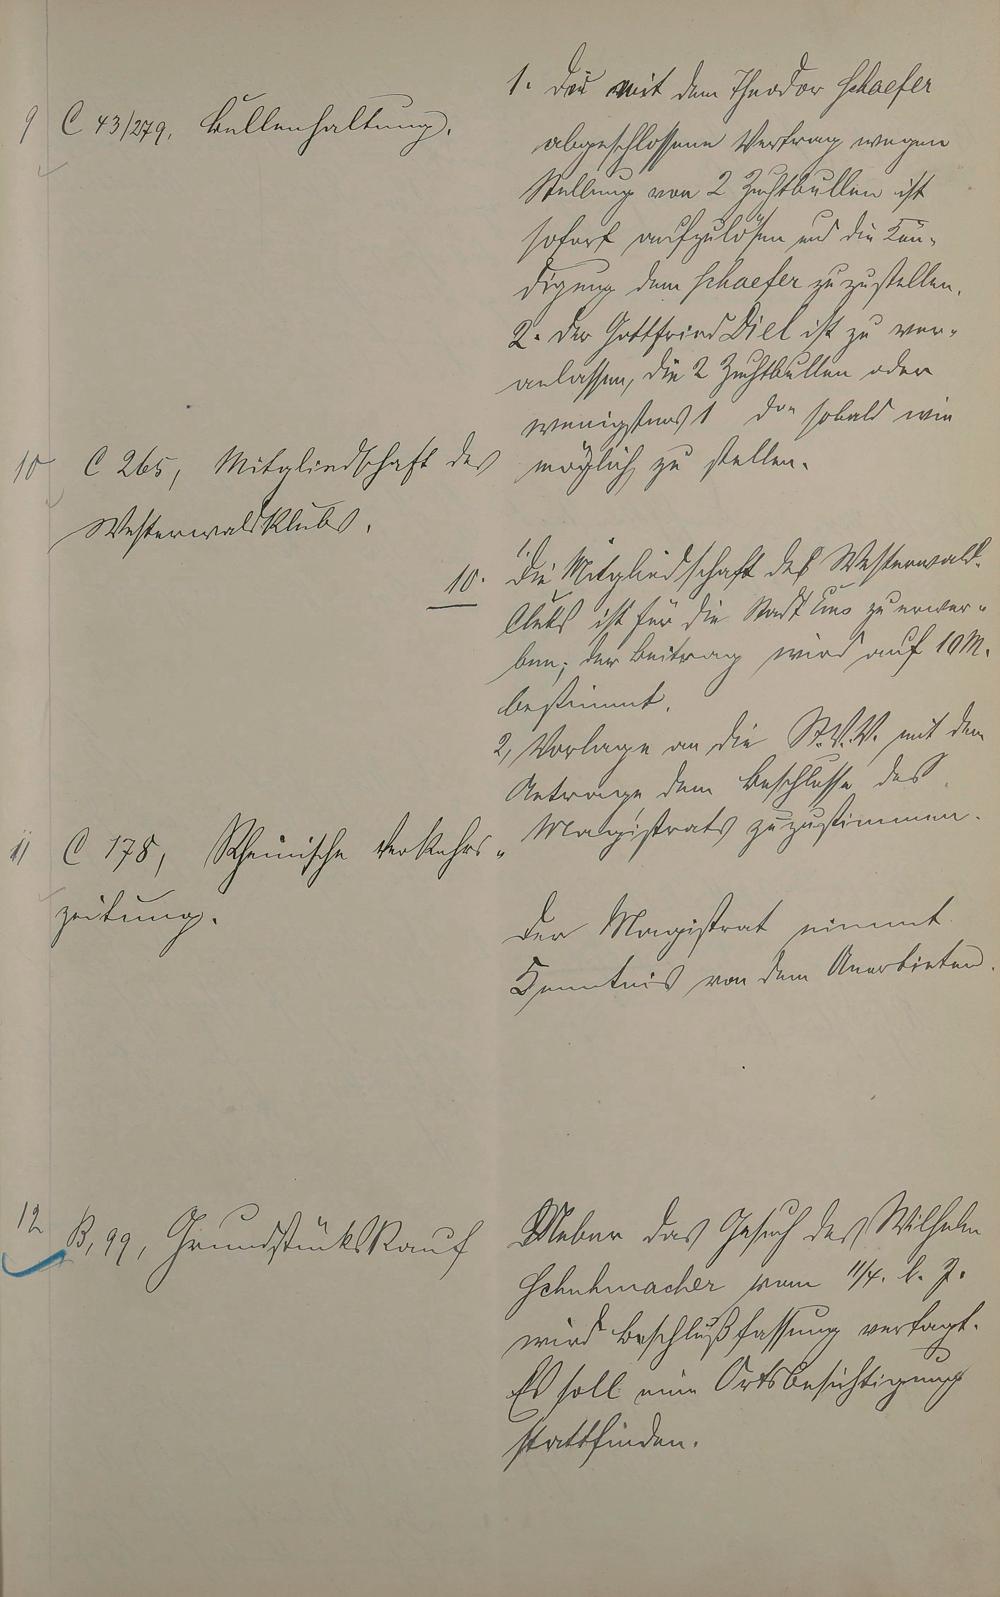 9 C 43/279, Bullenhaltung.
1. Der mit dem Theodor Schaefer
abgeschlossene Vertrag wegen
Stellung von 2 Zuchtbullen ist
sofort aufzulösen und die Kün-
digung dem Schaefer zuzustellen.
2. Der Gottfried Diel ist zu ver-
anlassen, die 2 Zuchtbullen oder
wenigstens 1 sobald wie
möglich zu stellen.
10 C 265, Mitgliedschaft des
Westerwaldklubs.
10. 1. Die Mitgliedschaft des Westerwald-
Clubs ist für die Stadt zu erwer-
ben; der Beitrag wird auf 10 M.
bestimmt.
2, Vorlage an die St.V.V. mit dem
Antrage dem Beschlusse des
Magistrats zuzustimmen.
11 C 178, Rheinische Verkehrs-
zeitung.
Der Magistrat nimmt
Kenntnis von dem Anerbieten.
12 B, 99, Grundstückskauf
Ueber das Gesuch des Wilhelm
Schuhmacher vom 11/4. l. J.
wird Beschlußfassung vertagt.
Es soll eine Ortsbesichtigung
stattfinden.